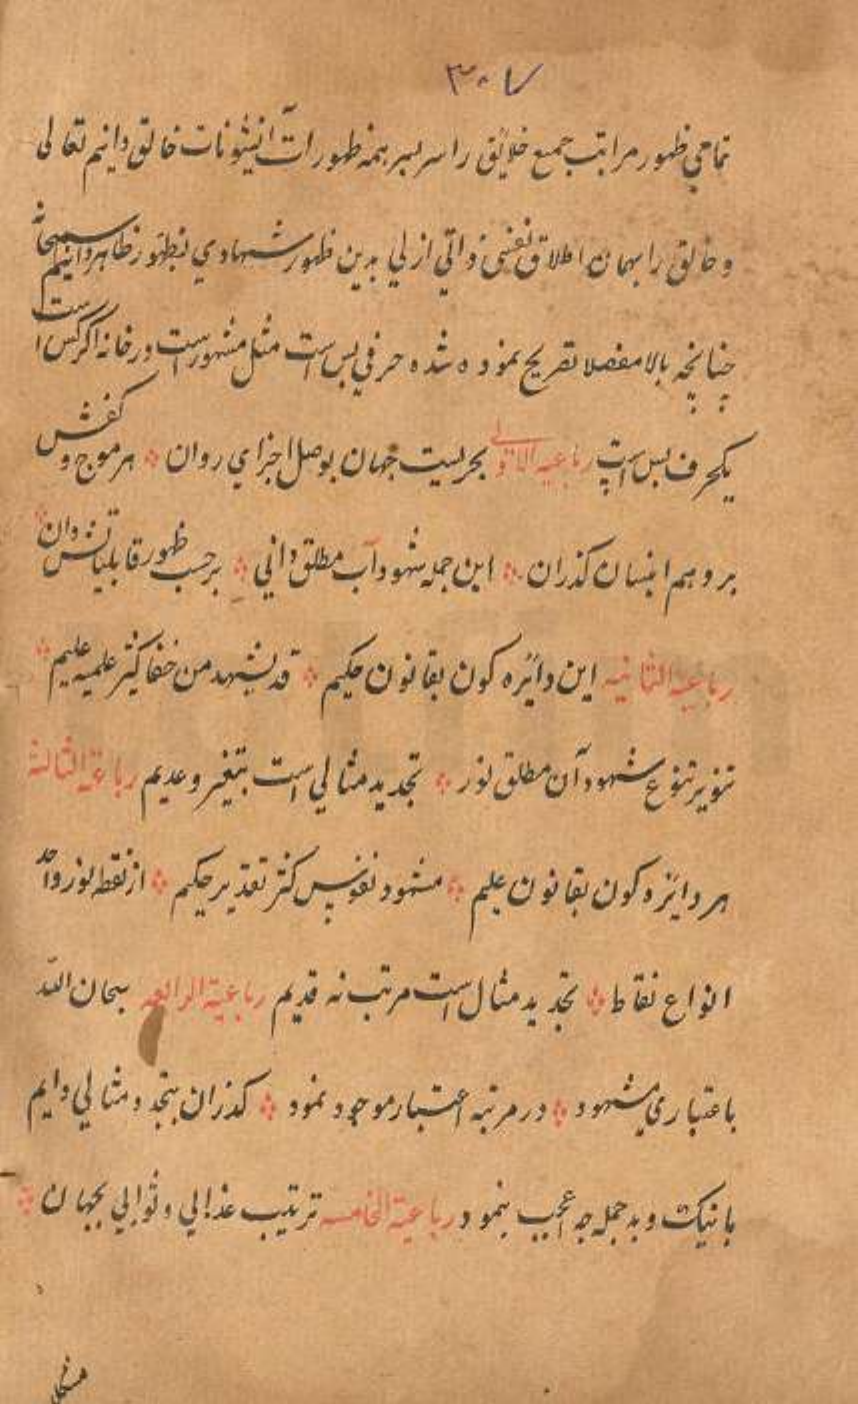 ۳۰۷
تمامی ظهور مراتب جمیع خلایق را سر بسر همه ظهورات آن شئونات خالق دانیم تعالی
و خالق را بهمان اطلاق نفسی ذاتی ازلی بدین ظهور شهادی بظهور ظاهر دانیم سبحانه
چنانچه بالا مفصلا تصریح نموده شده حرفی بس است مثل مشهور است در خانه اگر کس است
یکحرف بس است رباعیه الاولی بحریست جهان بوصل اجزای روان ؞ هر موج و کفش
بروهم انسان گذران ؞ این جمله شهود آب مطلق دانی ؞ برحسب ظهور قابلیاتش دان ؞
رباعیة الثانیه این دائره کون بقانون حکیم ؞ قد یشهد من خفا کثر علمیه علیم ؞
تنویر تنوع شهود آن مطلق نور ؞ تجدید مثالی است بتغیر و عدیم رباعیة الثالثة
هر دائره کون بقانون علیم ؞ مشهود نفوس کثر تقدیر حکیم ؞ از نقطه نور واحد
انواع نقاط ؞ تجدید مثال است مرتب نه قدیم رباعیة الرابعه سبحان الله
باعتباری مشهود ؞ در مرتبه اعتبار موجود نمود ؞ گذران بتجدد مثالی دایم
با نیک و بد جمله چه عجب بنمود رباعیة الخامسه ترتیب عذابی و ثوابی بجهان ؞